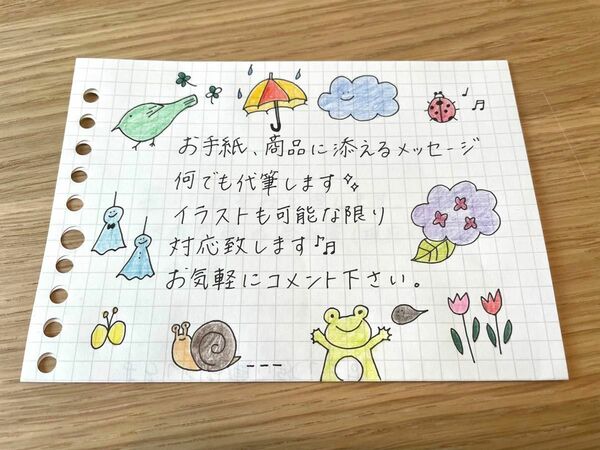 お手紙、商品に添えるメッセージ
何でも代筆します✨
イラストも可能な限り
対応致します♪♬
お気軽にコメント下さい。